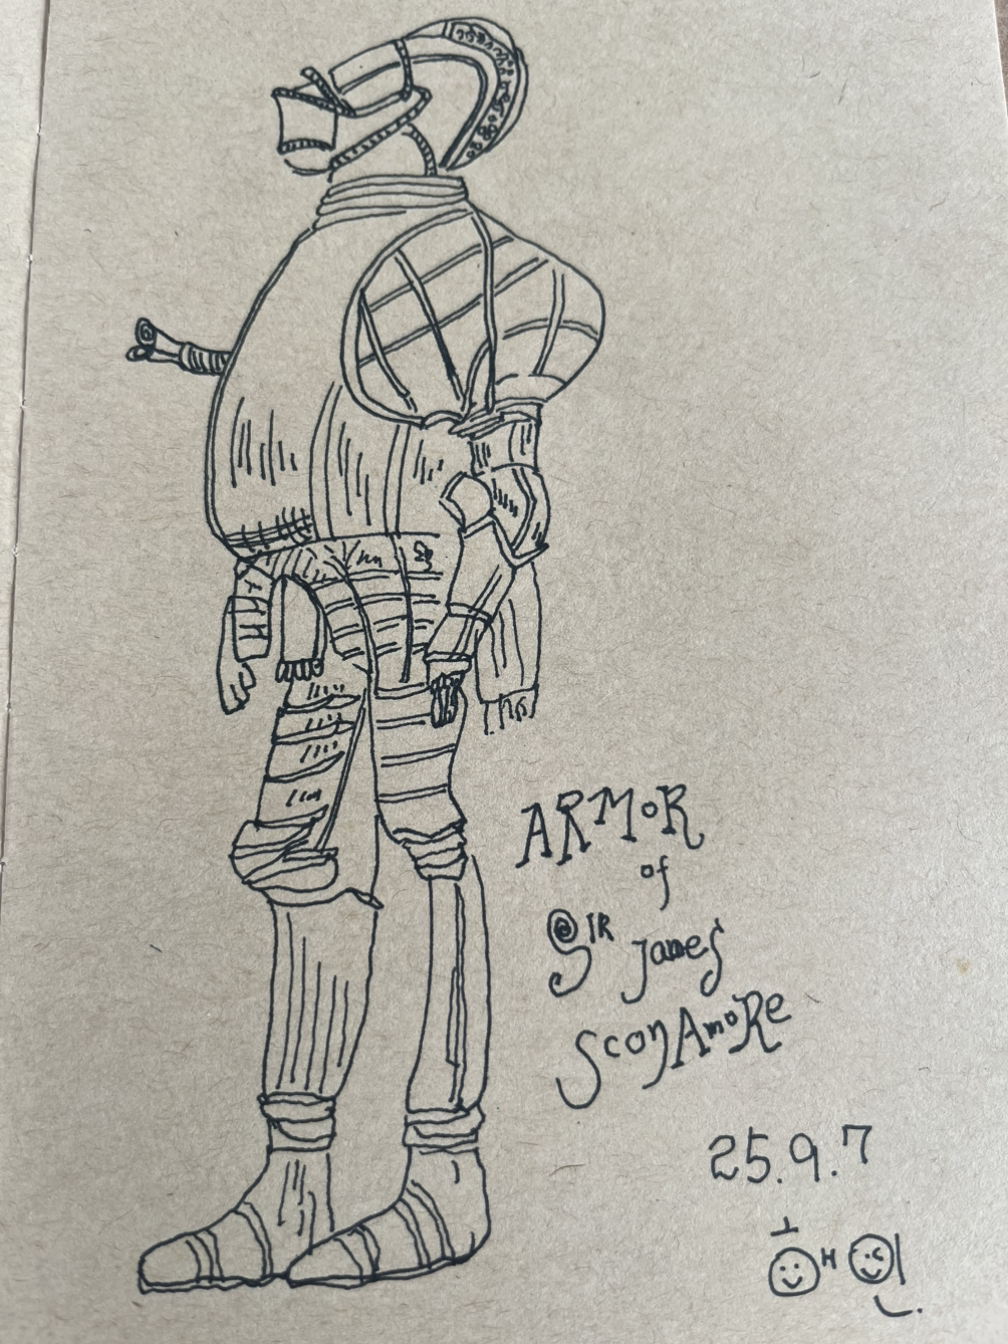 ARMoR
of
SIR James
SconAmoRe
25.9.7
해인